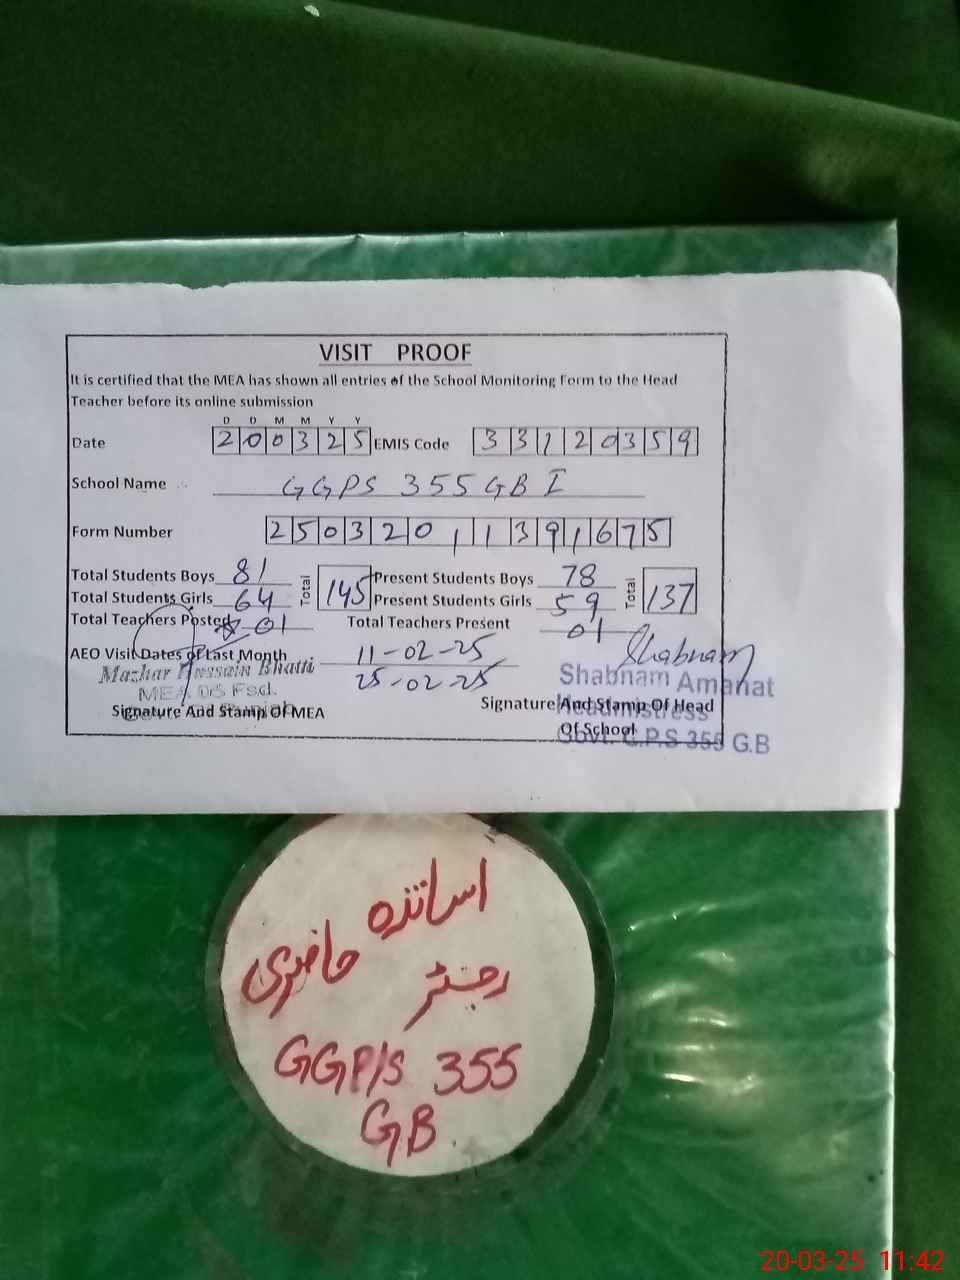 VISIT PROOF
It is certified that the MEA has shown all entries of the School Monitoring Form to the Head
Teacher before its online submission
D D M M Y Y
Date 200325 EMIS Code 33120359
School Name GGPS 355 GB I
Form Number 25032011391675
Total Students Boys 81 Total 145 Present Students Boys 78 Total 137
Total Students Girls 64 Present Students Girls 59
Total Teachers Posted 01 Total Teachers Present 01
AEO Visit Dates of Last Month 11-02-25
25-02-25
Shabnam
Mazhar Hussain Bhatti
MEA D/S Fsd.
Signature And Stamp Of MEA
Shabnam Amanat
Headmistress
Govt. G.P.S 355 G.B
Signature And Stamp Of Head
Of School
اساتذہ حاضری
رجسٹر
GGP/S 355
GB
20-03-25 11:42